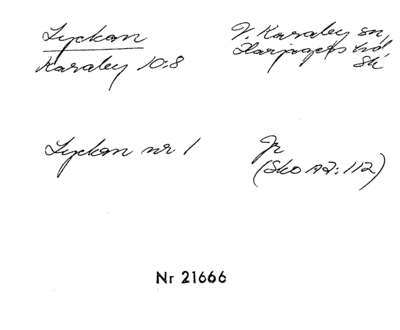 Lyckan
V. Karaby sn,
Harjagers hd,
Sk
Karaby 10:8
Lyckan nr 1
Jr
(Sko A2:112)
Nr 21666